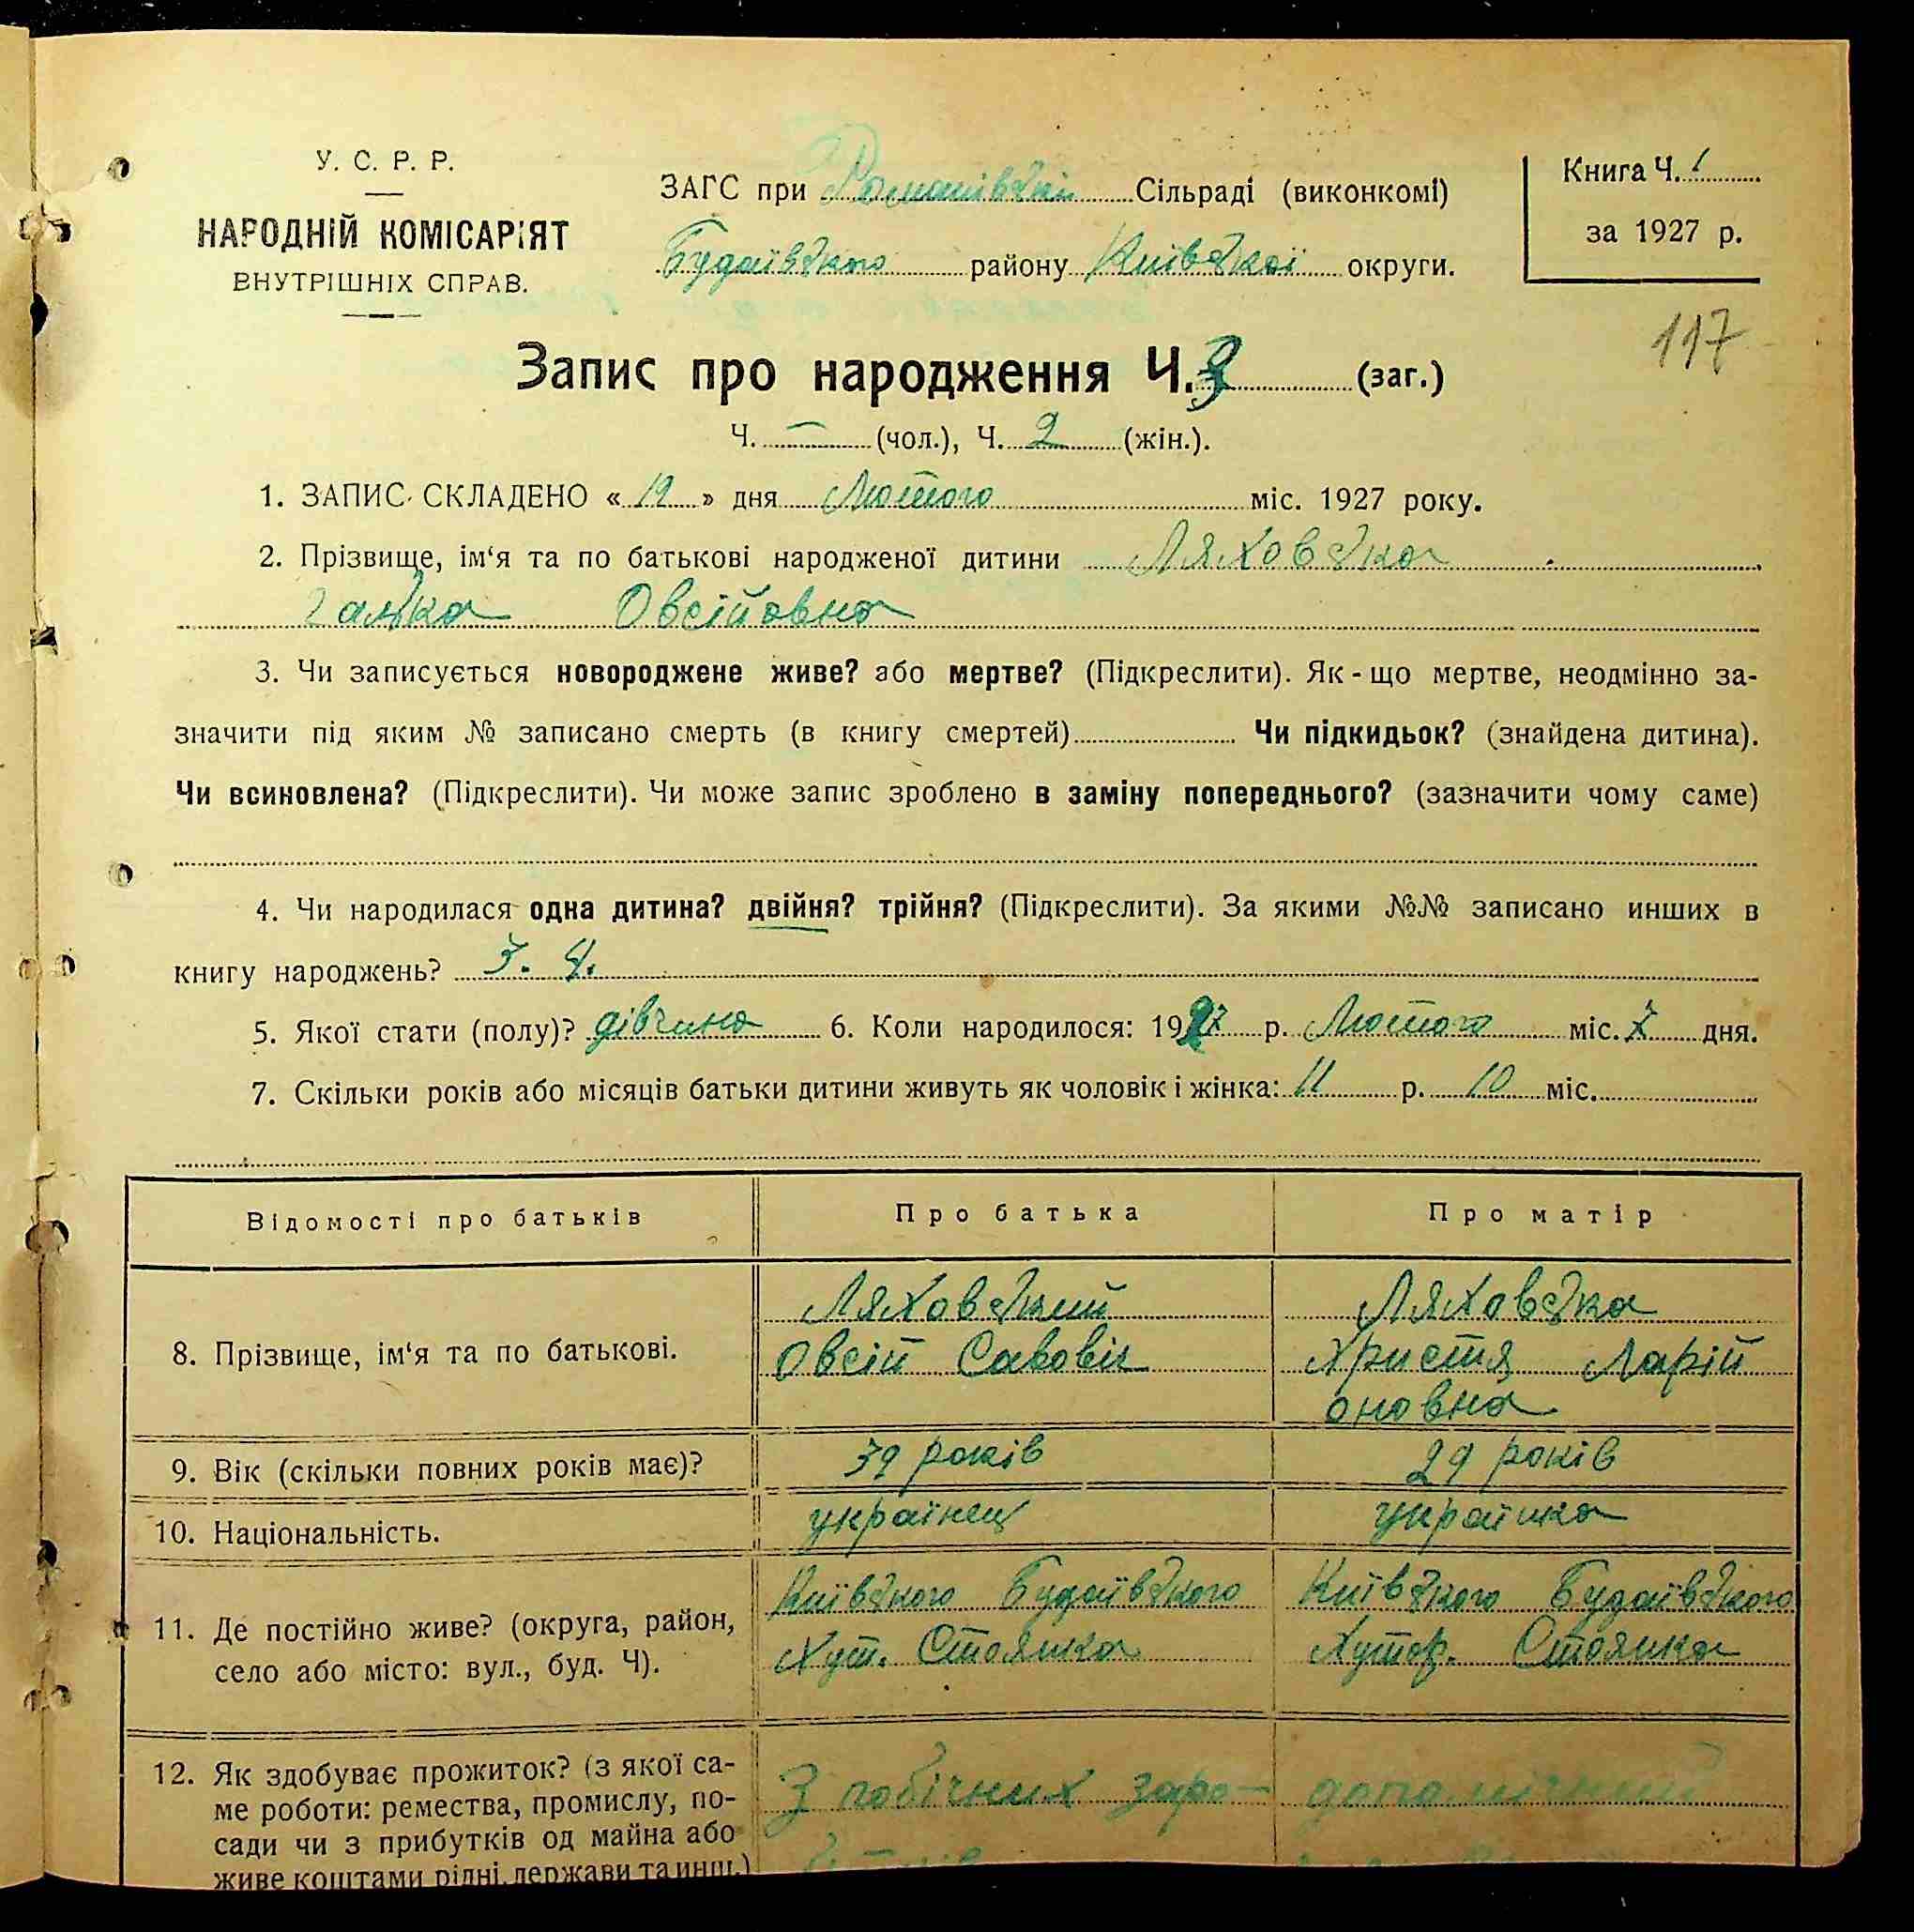 У. С. Р. Р.
НАРОДНІЙ КОМІСАРІЯТ
ВНУТРІШНІХ СПРАВ.
ЗАГС при Романівській Сільраді (виконкомі)
Будаївського району Київської округи.
Книга Ч. 1
за 1927 р.
117
Запис про народження Ч. 3 (заг.)
Ч. — (чол.), Ч. 2 (жін.).
1. ЗАПИС СКЛАДЕНО «12» дня Лютого міс. 1927 року.
2. Прізвище, ім‘я та по батькові народженої дитини Ляховська
Галька Овсійовна
3. Чи записується новороджене живе? або мертве? (Підкреслити). Як-що мертве, неодмінно за-
значити під яким № записано смерть (в книгу смертей) Чи підкидьок? (знайдена дитина).
Чи всиновлена? (Підкреслити). Чи може запис зроблено в заміну попереднього? (зазначити чому саме)
4. Чи народилася одна дитина? двійня? трійня? (Підкреслити). За якими №№ записано инших в
книгу народжень? 3. 4.
5. Якої стати (полу)? дівчина 6. Коли народилося: 1927 р. Лютого міс. 7 дня.
7. Скільки років або місяців батьки дитини живуть як чоловік і жінка: 11 р. 10 міс.
Відомості про батьків Про батька Про матір
8. Прізвище, ім‘я та по батькові.
Ляховський
Овсій Савовіч
Ляховська
Христя Ларій
оновна
9. Вік (скільки повних років має)? 39 років 29 років
10. Національність. українец українка
11. Де постійно живе? (округа, район,
село або місто: вул., буд. Ч).
Київського Будаївського
Хут. Стоянка
Київського Будаївського
Хутор. Стоянка
12. Як здобуває прожиток? (з якої са-
ме роботи: ремества, промислу, по-
сади чи з прибутків од майна або
живе коштами рідні, держави та инш.)
З побічних заро-